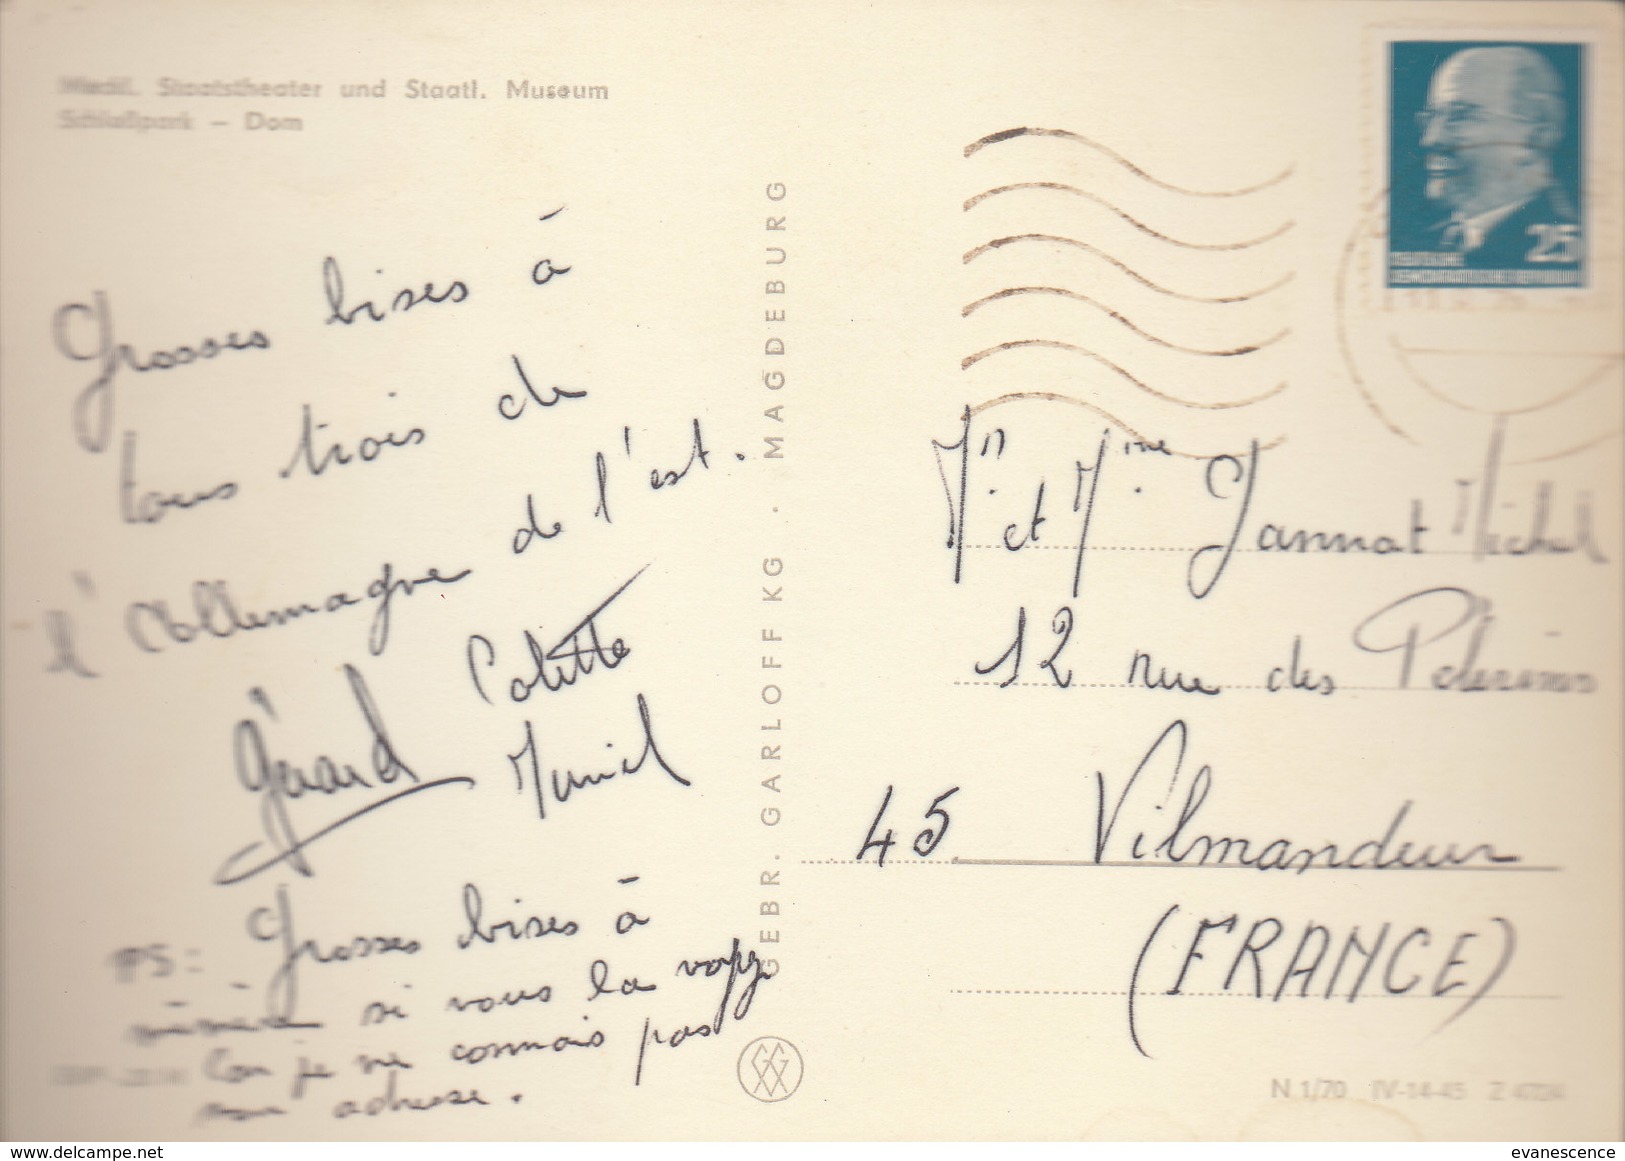 Meckl. Staatstheater und Staatl. Museum
Schloßpark – Dom
Grosses bises à
tous trois de
l'Allemagne de l'est.
Gérard Colette
Muriel
PS: Grosses bises à
mémère si vous la voyez
Car je ne connais pas
son adresse.
GEBR. GARLOFF KG · MAGDEBURG
25
DEUTSCHE
DEMOKRATISCHE REPUBLIK
Mr. et Mme. Jannat Michel
12 rue des Pélerins
45 Vilmandeur
(FRANCE)
N 1/70 IV-14-45 Z
evanescence